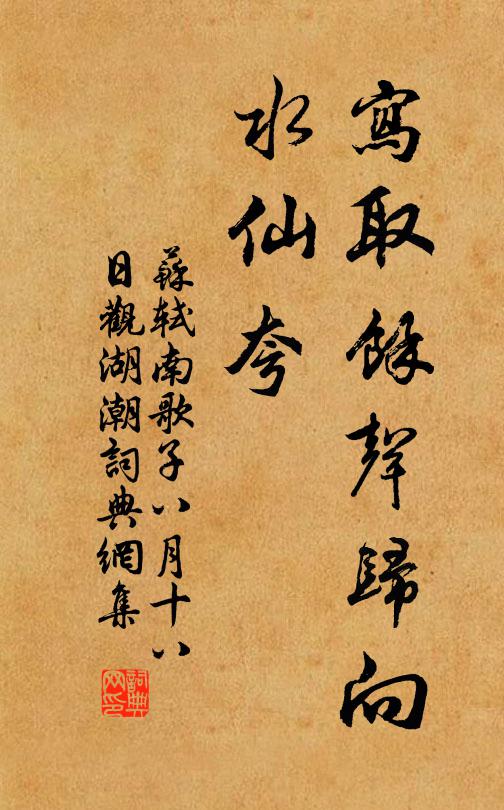 寫取餘聲歸向
水仙夸
蘇軾南歌子八月十八
日觀湖潮詞典網集
詞典网印